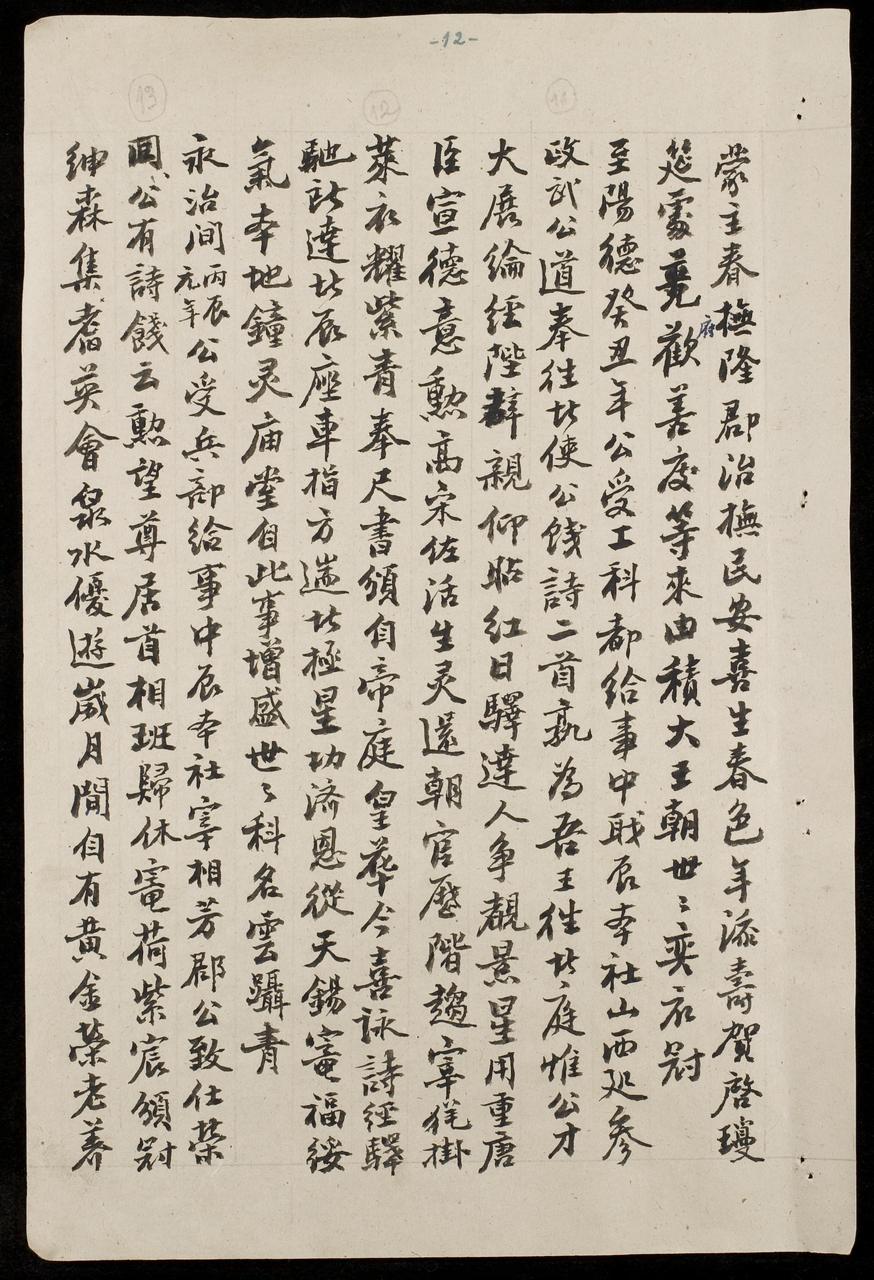 -12-
11
12
13
蒙主春撫隆郡治撫民安喜生春色年添壽賀啓瓊
府
筵霎菀歡善度等來由積大王朝世〻奕衣冠
至陽德癸丑年公受工科都給事中戝辰本社山西処參
政武公道奉往北使公餞詩二首孰為吾王徃北庭惟公才
大展綸經陛辭親仰貼紅日驛達人争覩景星用重唐
臣宣德意勲高宋佐活生灵還朝官歷階趨宰掛
萊衣耀紫青奉尺書頒自帝庭皇華今喜詠詩經驛
馳訴達北辰座車指方遄北極星功济恩從天錫寵福綏
氣本地鐘灵庙堂自此事增盛世〻科名雲躡青
永治间丙辰元年公受兵部給事中辰本社宰相芳郡公致仕榮
囬公有詩餞云勲望尊居首相班歸休寵荷紫宸頒冠
紳森集耆英會泉水優遊歲月間自有黄金榮老养